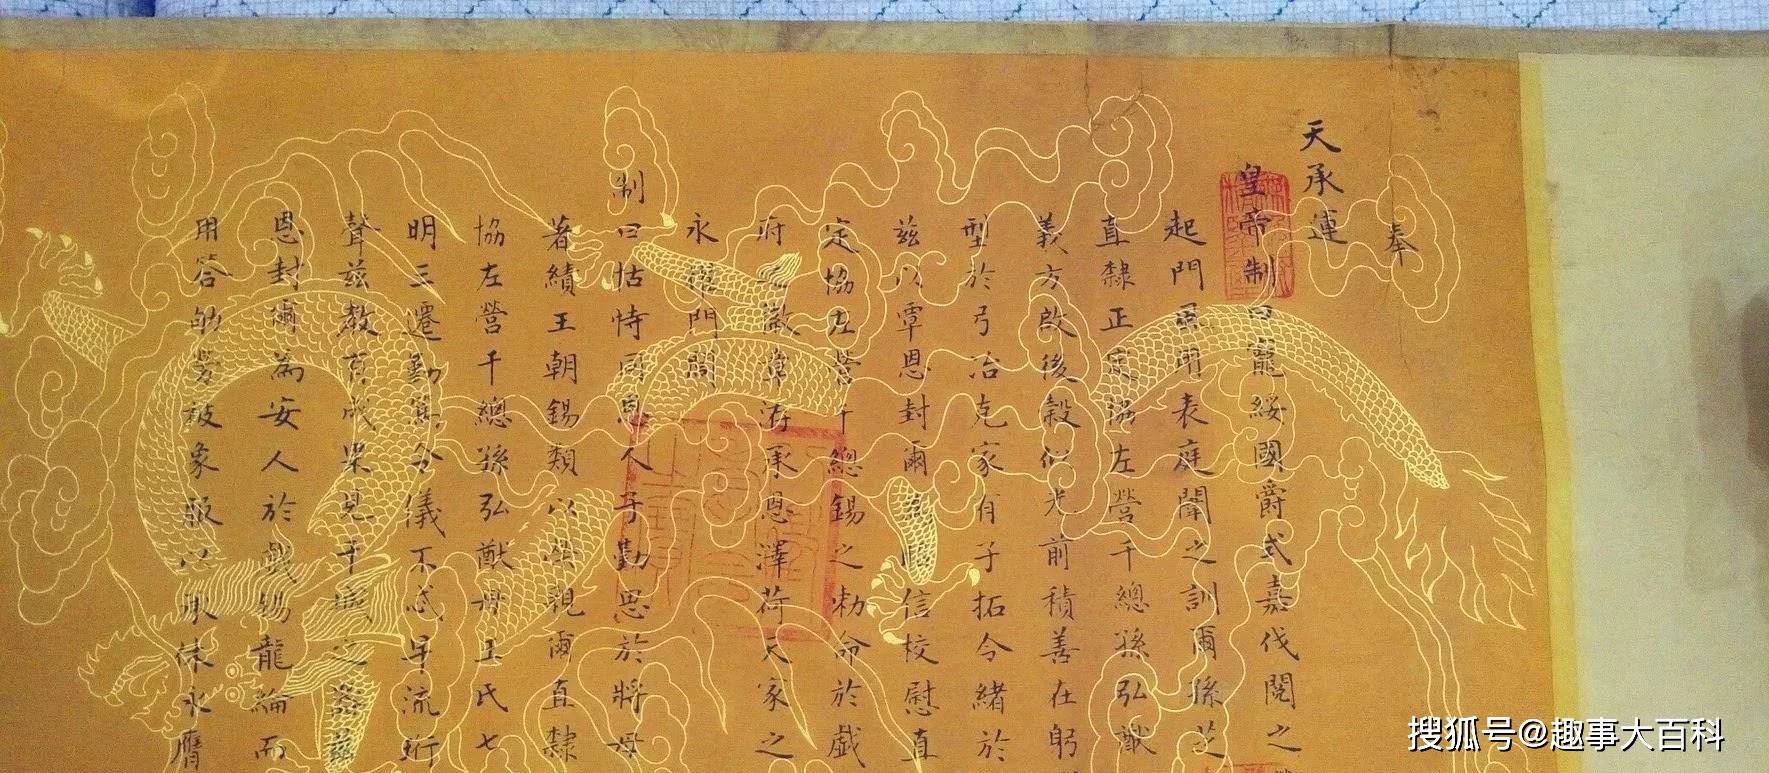 奉
天承運
皇帝制曰寵綏國爵式嘉伐閱之
起門風用表庭闈之訓爾孫芝
直隸正定協左營千總孫弘猷
義方啟後穀似光前積善在躬
型於弓冶克家有子拓令緒於
茲以覃恩封爾為信校慰直
定協左營千總錫之勅命於戲
府之徽章洊承恩澤荷天家之
永襮門閭
制曰怙恃同恩人子勤思於將母
著績王朝錫類以榮親爾直隸
協左營千總孫弘猷母王氏七
明三遷勤篤令儀不忒早流珩
聲茲教育成果見干城之器茲
恩封爾為安人於戲錫龍綸而
用答劬勞被象服以承休永膺
搜狐号@趣事大百科